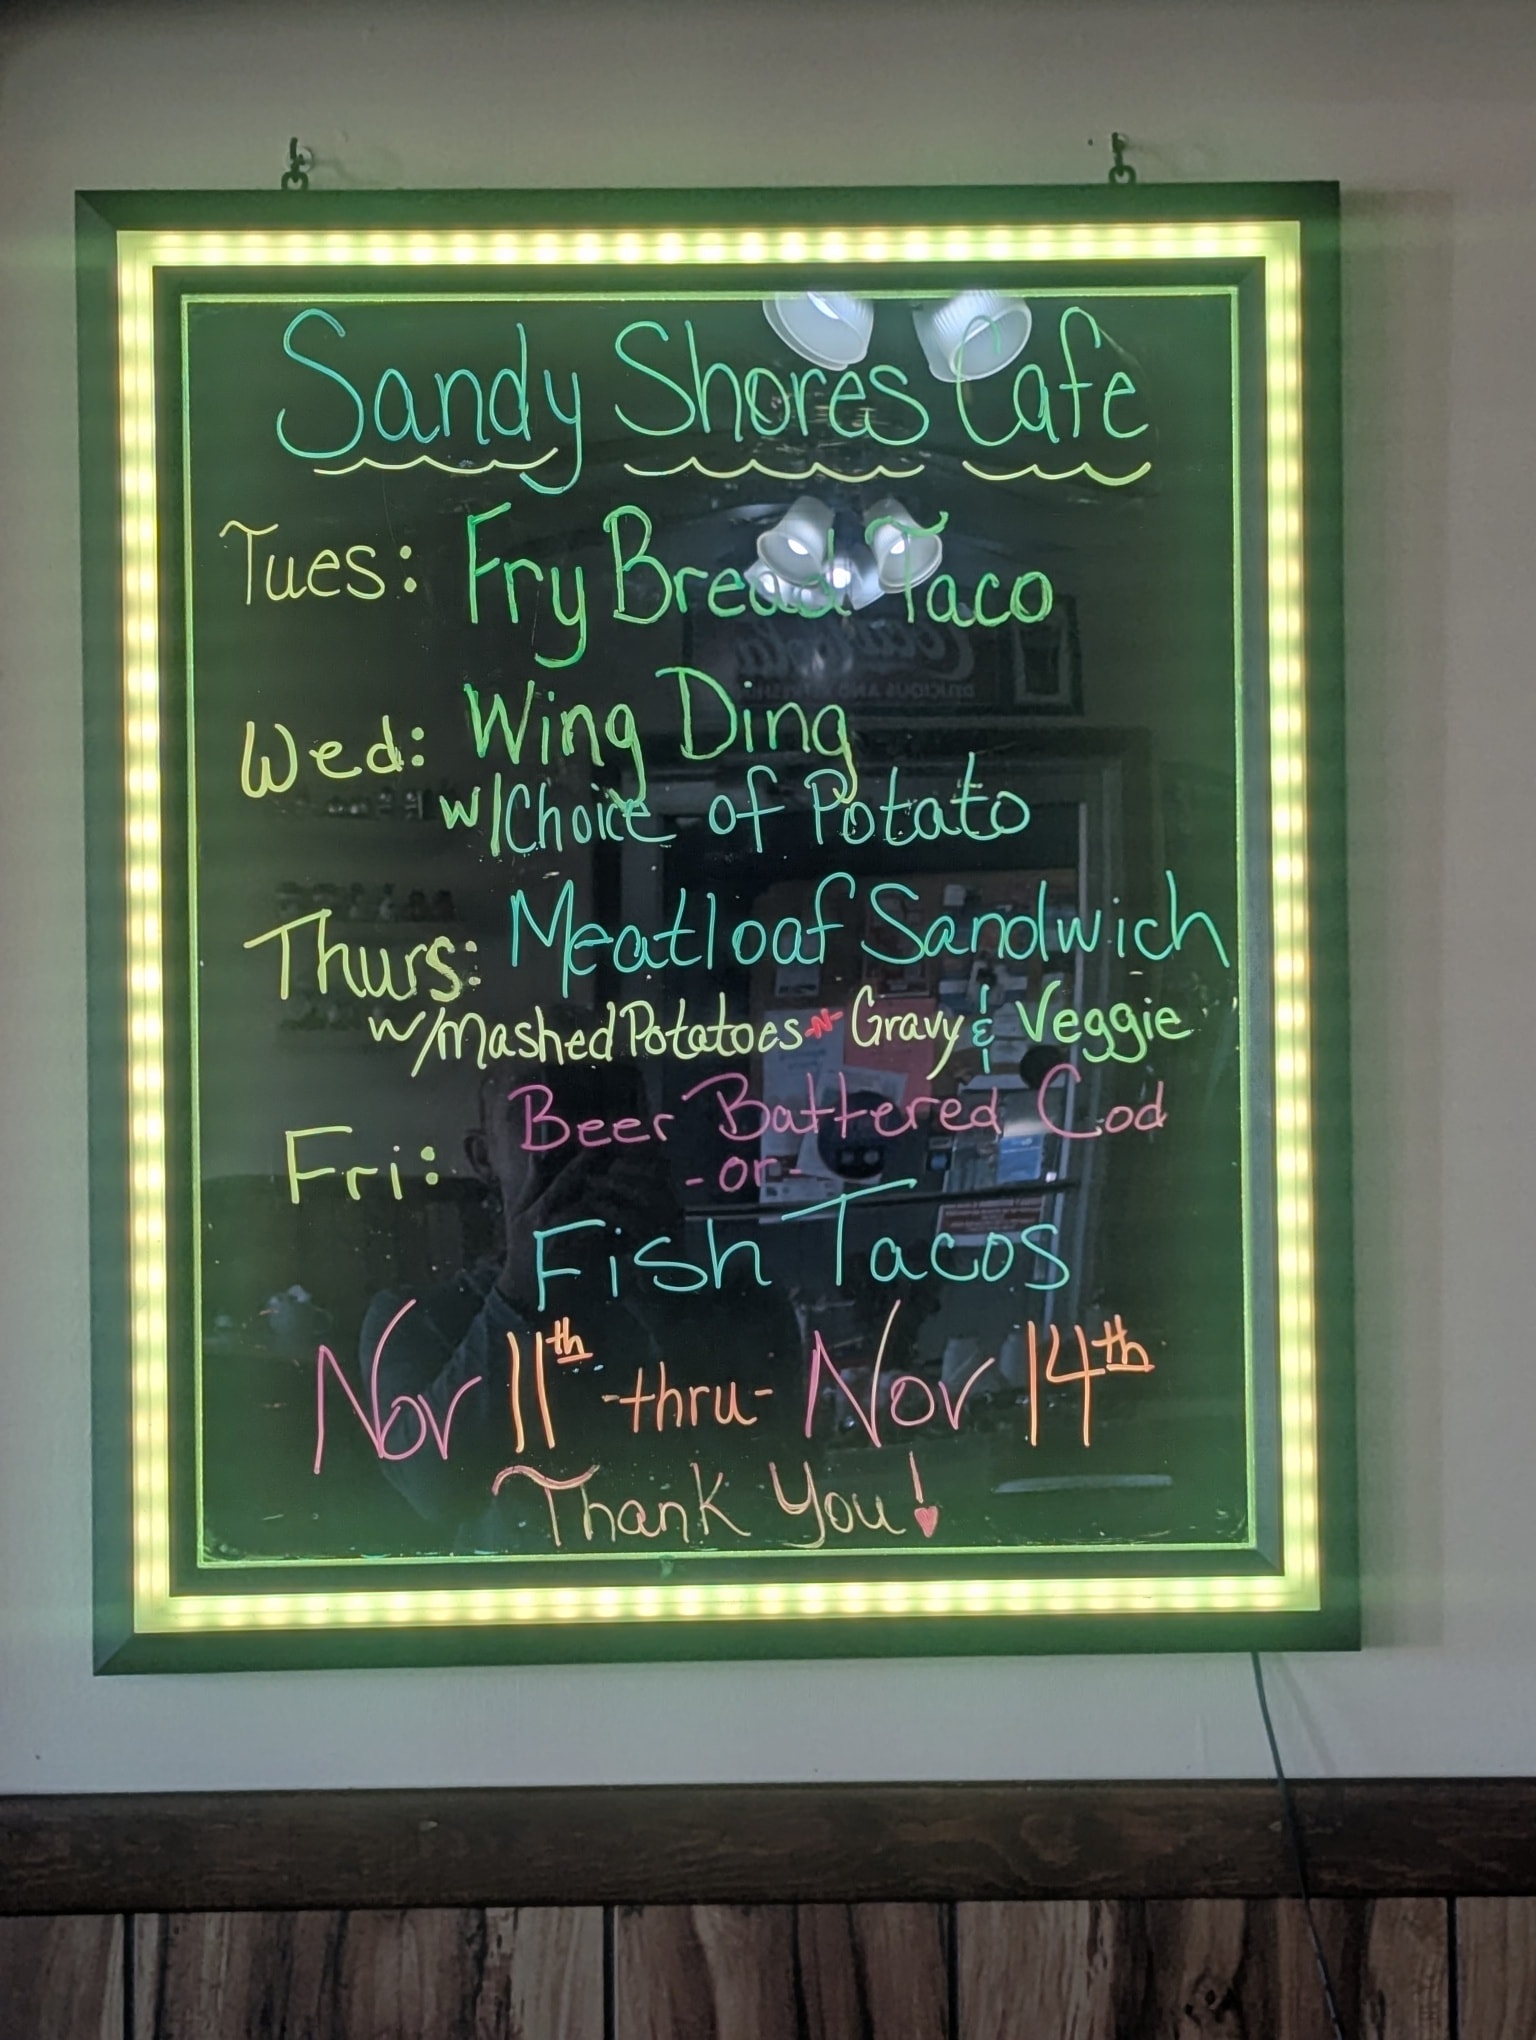 Sandy Shores Cafe
Tues: Fry Bread Taco
Wed: Wing Ding
w/Choice of Potato
Thurs: Meatloaf Sandwich
w/Mashed Potatoes -N- Gravy & Veggie
Fri: Beer Battered Cod
-or-
Fish Tacos
Nov 11th -thru- Nov 14th
Thank You!